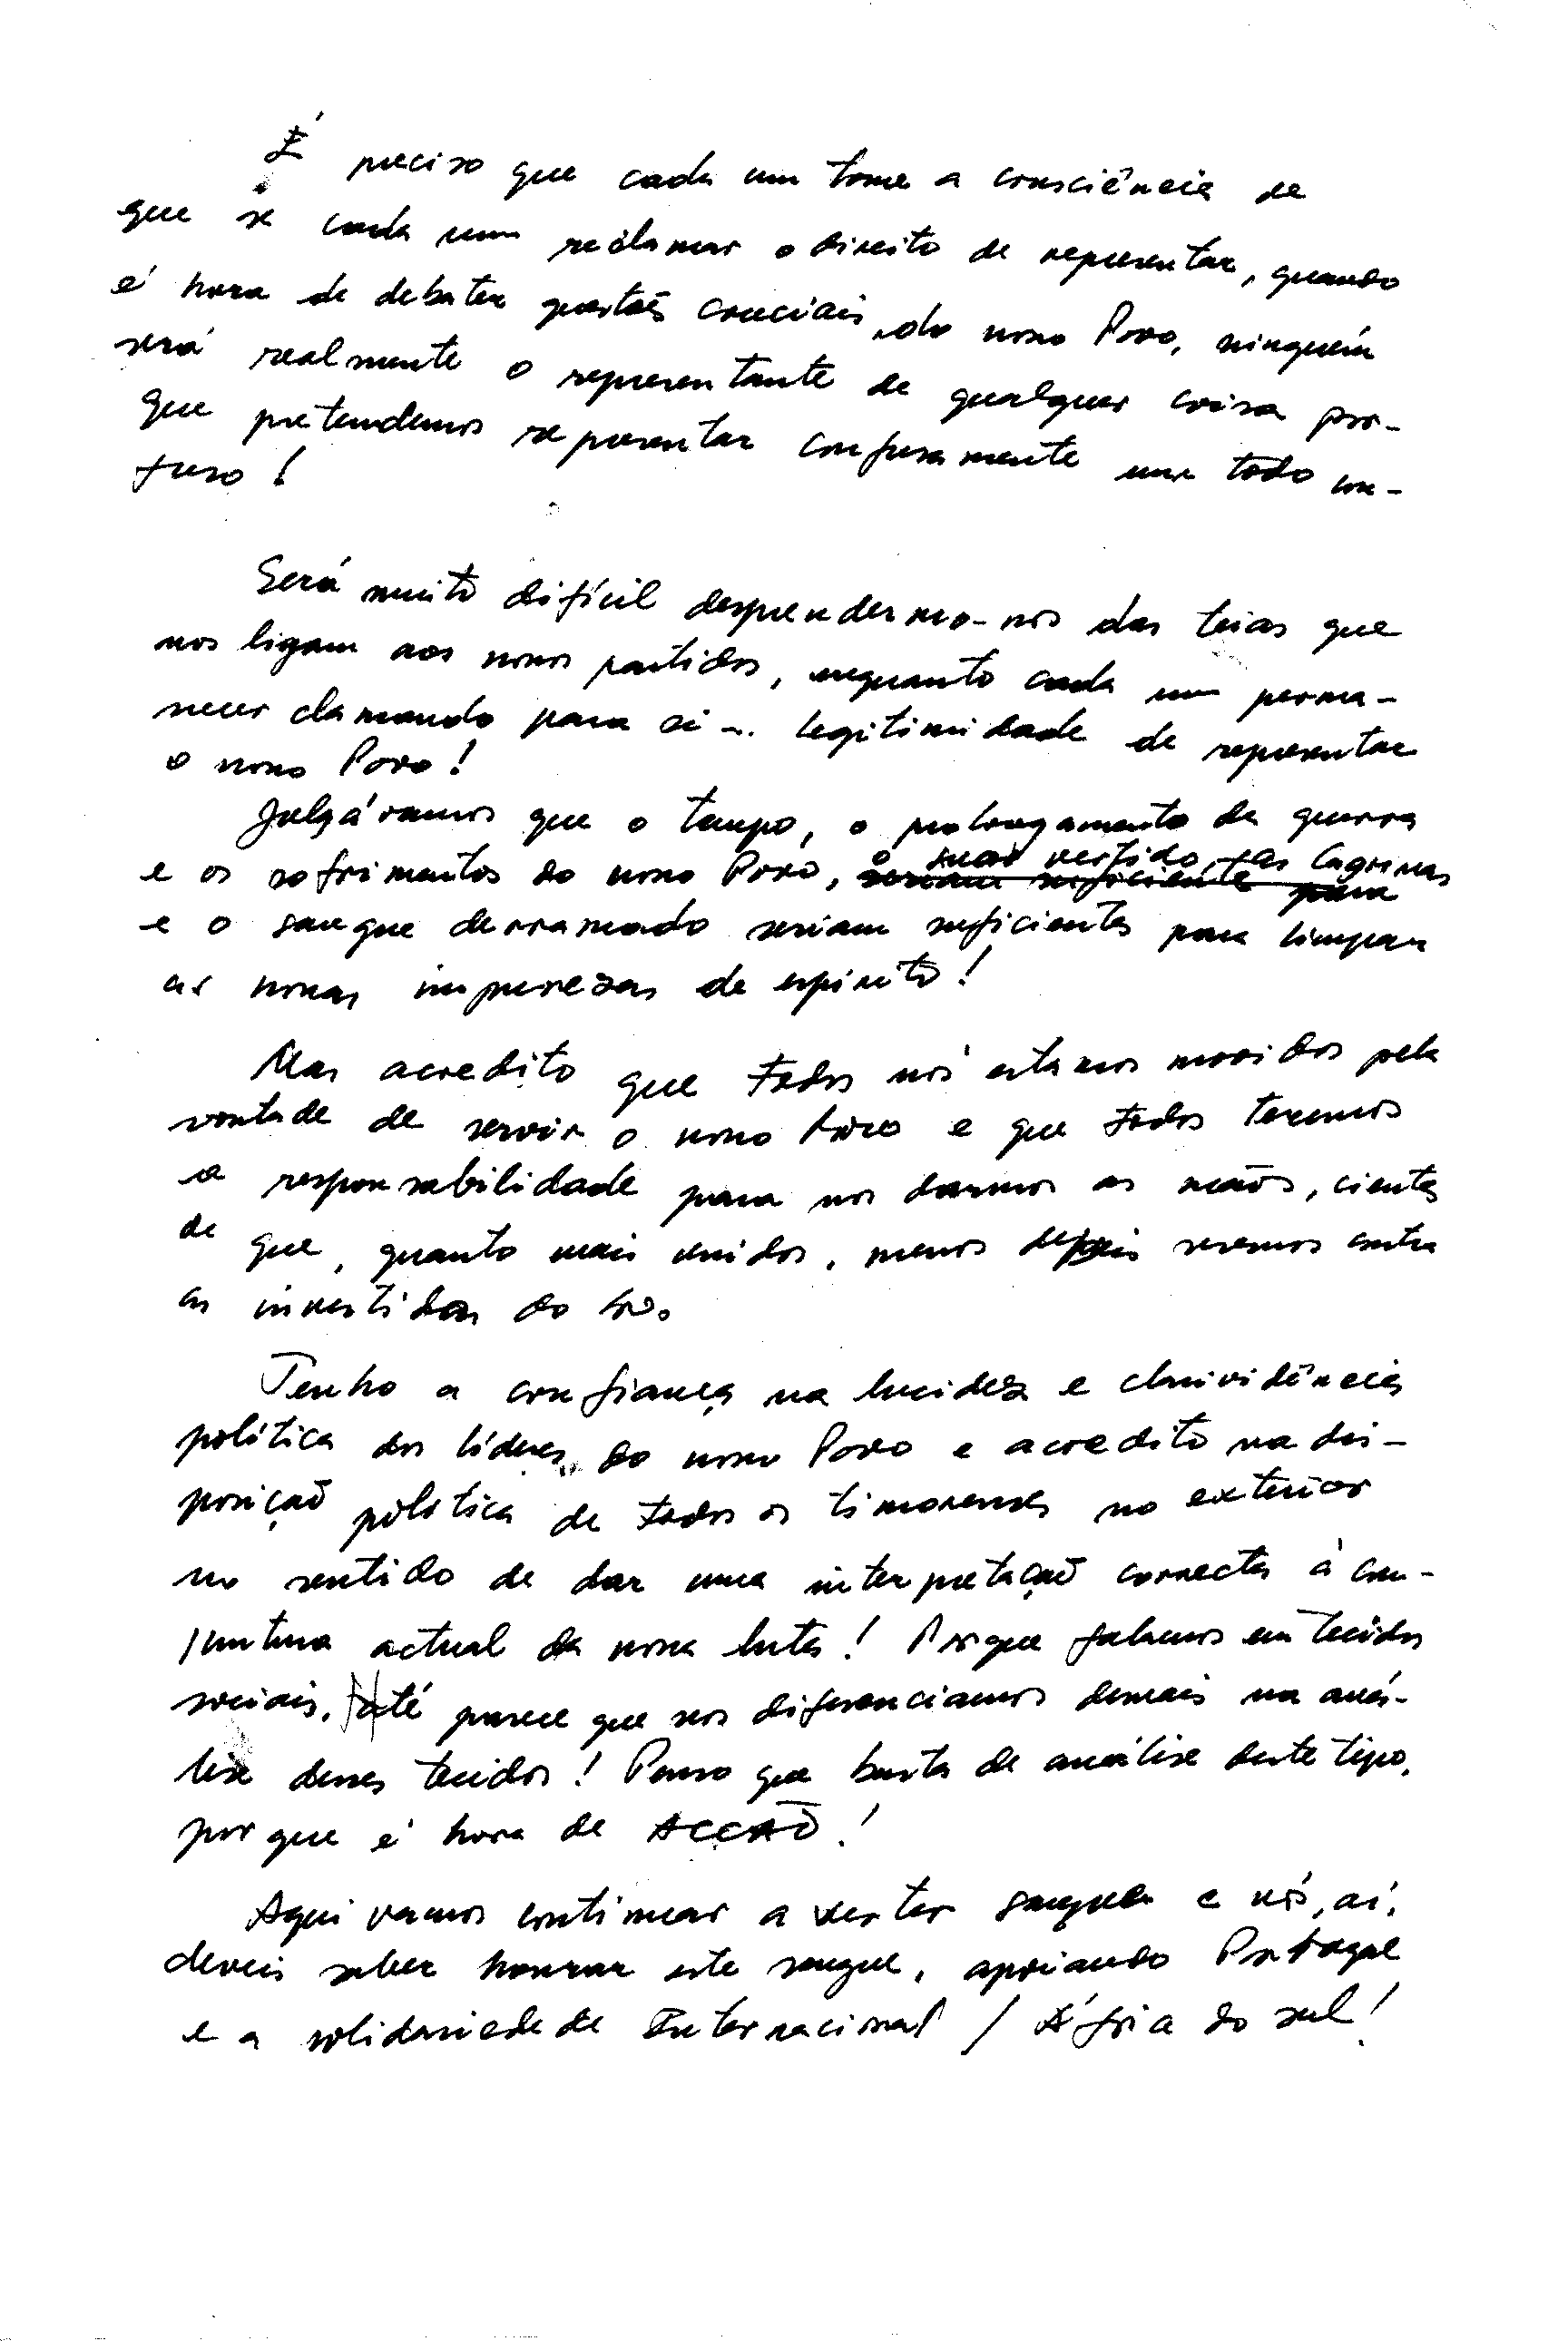 É preciso que cada um tome a consciência de
que se cada um reclamar o direito de representar, quando
é hora de debater questões cruciais do nosso Povo, ninguém
será realmente o representante de qualquer coisa por-
que pretendemos representar confusamente um todo con-
fuso!
Será muito difícil desprendermo-nos das teias que
nos ligam aos nossos partidos, enquanto cada um perma-
necer clamando para si a legitimidade de representar
o nosso Povo!
Julgáramos que o tempo, o prolongamento da guerra
e os sofrimentos do nosso Povo, o suor vertido, as lágrimas
e o sangue derramado seriam suficientes para limpar
as nossas impurezas de espírito!
Mas acredito que todos nós estamos movidos pela
vontade de servir o nosso Povo e que todos teremos
a responsabilidade para nos darmos as mãos, cientes
de que, quanto mais unidos, menos seremos contra
as investidas do
Tenho a confiança na lucidez e clarividência
política dos líderes do nosso Povo e acredito na dis-
posição política de todos os timorenses no exterior
no sentido de dar uma interpretação correcta à con-
juntura actual da nossa luta! Porque falamos em tecidos
sociais, até parece que nos diferenciamos demais na aná-
lise desses tecidos! Penso que basta de análise deste tipo,
porque é hora de ACÇÃO!
Aqui vamos continuar a verter sangue e vós, aí,
deveis saber honrar este sangue, apoiando Portugal
e a solidariedade Internacional / África do sul!